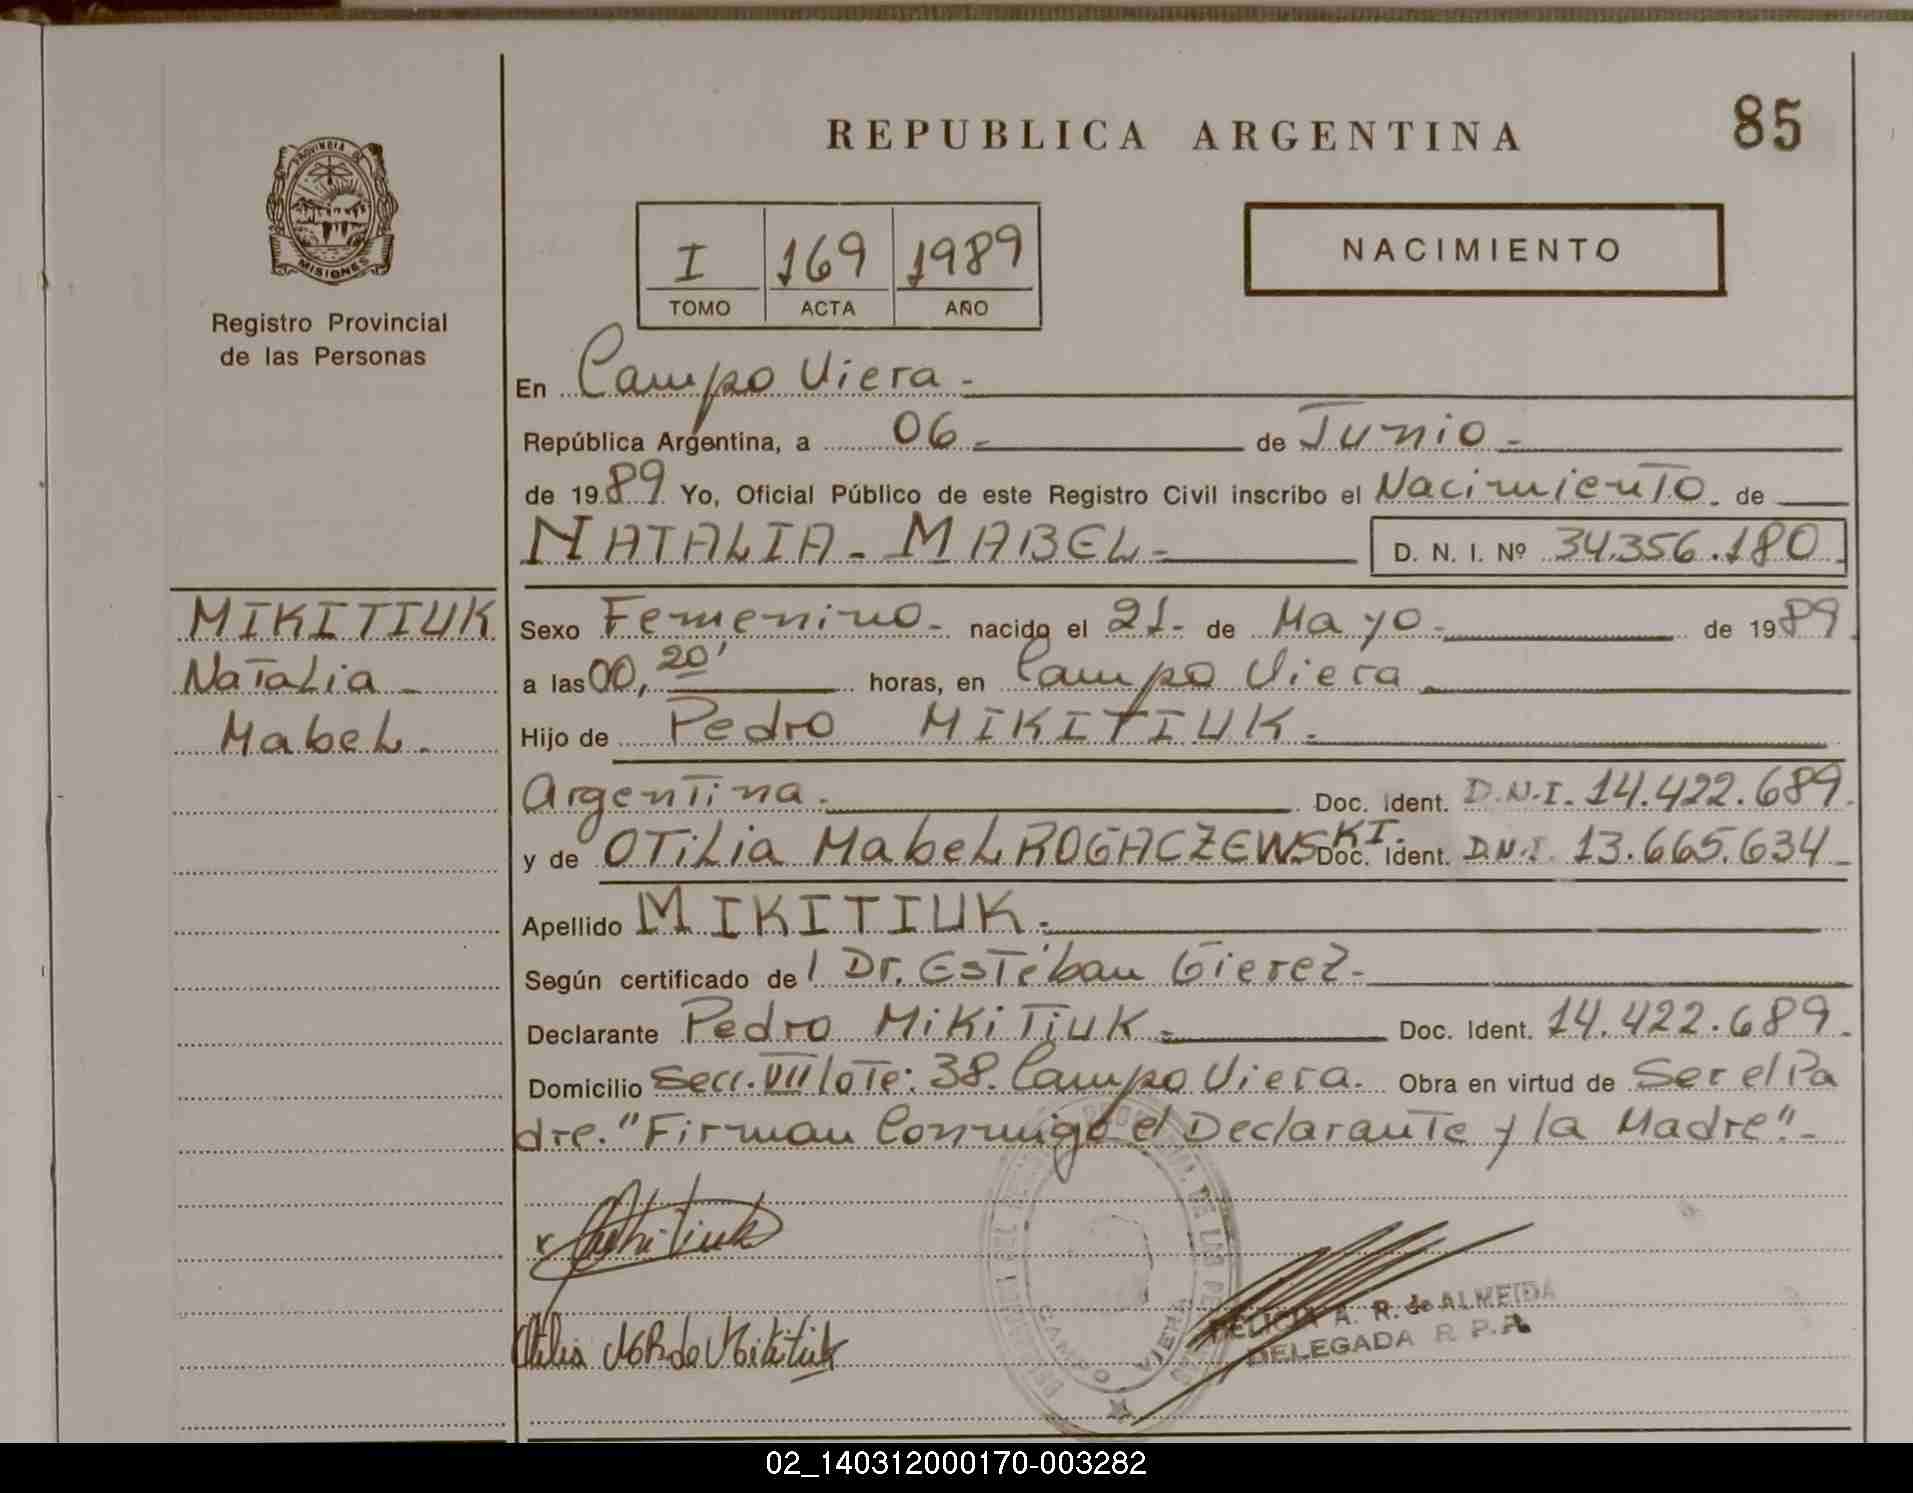 REPUBLICA ARGENTINA
85
PROVINCIA DE
MISIONES
Registro Provincial
de las Personas
I 169 1989
TOMO ACTA AÑO
NACIMIENTO
En Campo Viera.-
República Argentina, a 06.- de Junio.-
de 1989 Yo, Oficial Público de este Registro Civil inscribo el Nacimiento.- de
NATALIA- MABEL.- D. N. I. Nº 34.356.180
MIKITIUK
Natalia -
Mabel.
Sexo Femenino.- nacido el 21.- de Mayo.- de 1989.
a las 00,20' horas, en Campo Viera
Hijo de Pedro MIKITIUK.
Argentina.- Doc. Ident. D.N.I. 14.422.689.
y de OTiLia MabeL ROGACZEWSKI.- Doc. Ident. D.N.I. 13.665.634
Apellido MIKITIUK.-
Según certificado de l Dr. Esteban Gierez.-
Declarante Pedro MiKiTiuK.- Doc. Ident. 14.422.689.
Domicilio Secc. VII lote: 38. Campo Viera. Obra en virtud de Ser el Pa
dre. "Firman Conmigo el Declarante y la Madre".-
Mikitiuk
Otilia M R de Mikitiuk
CAMPO VIERA
DELICIA A. R. de ALMEIDA
DELEGADA R. P. P.
02_140312000170-003282